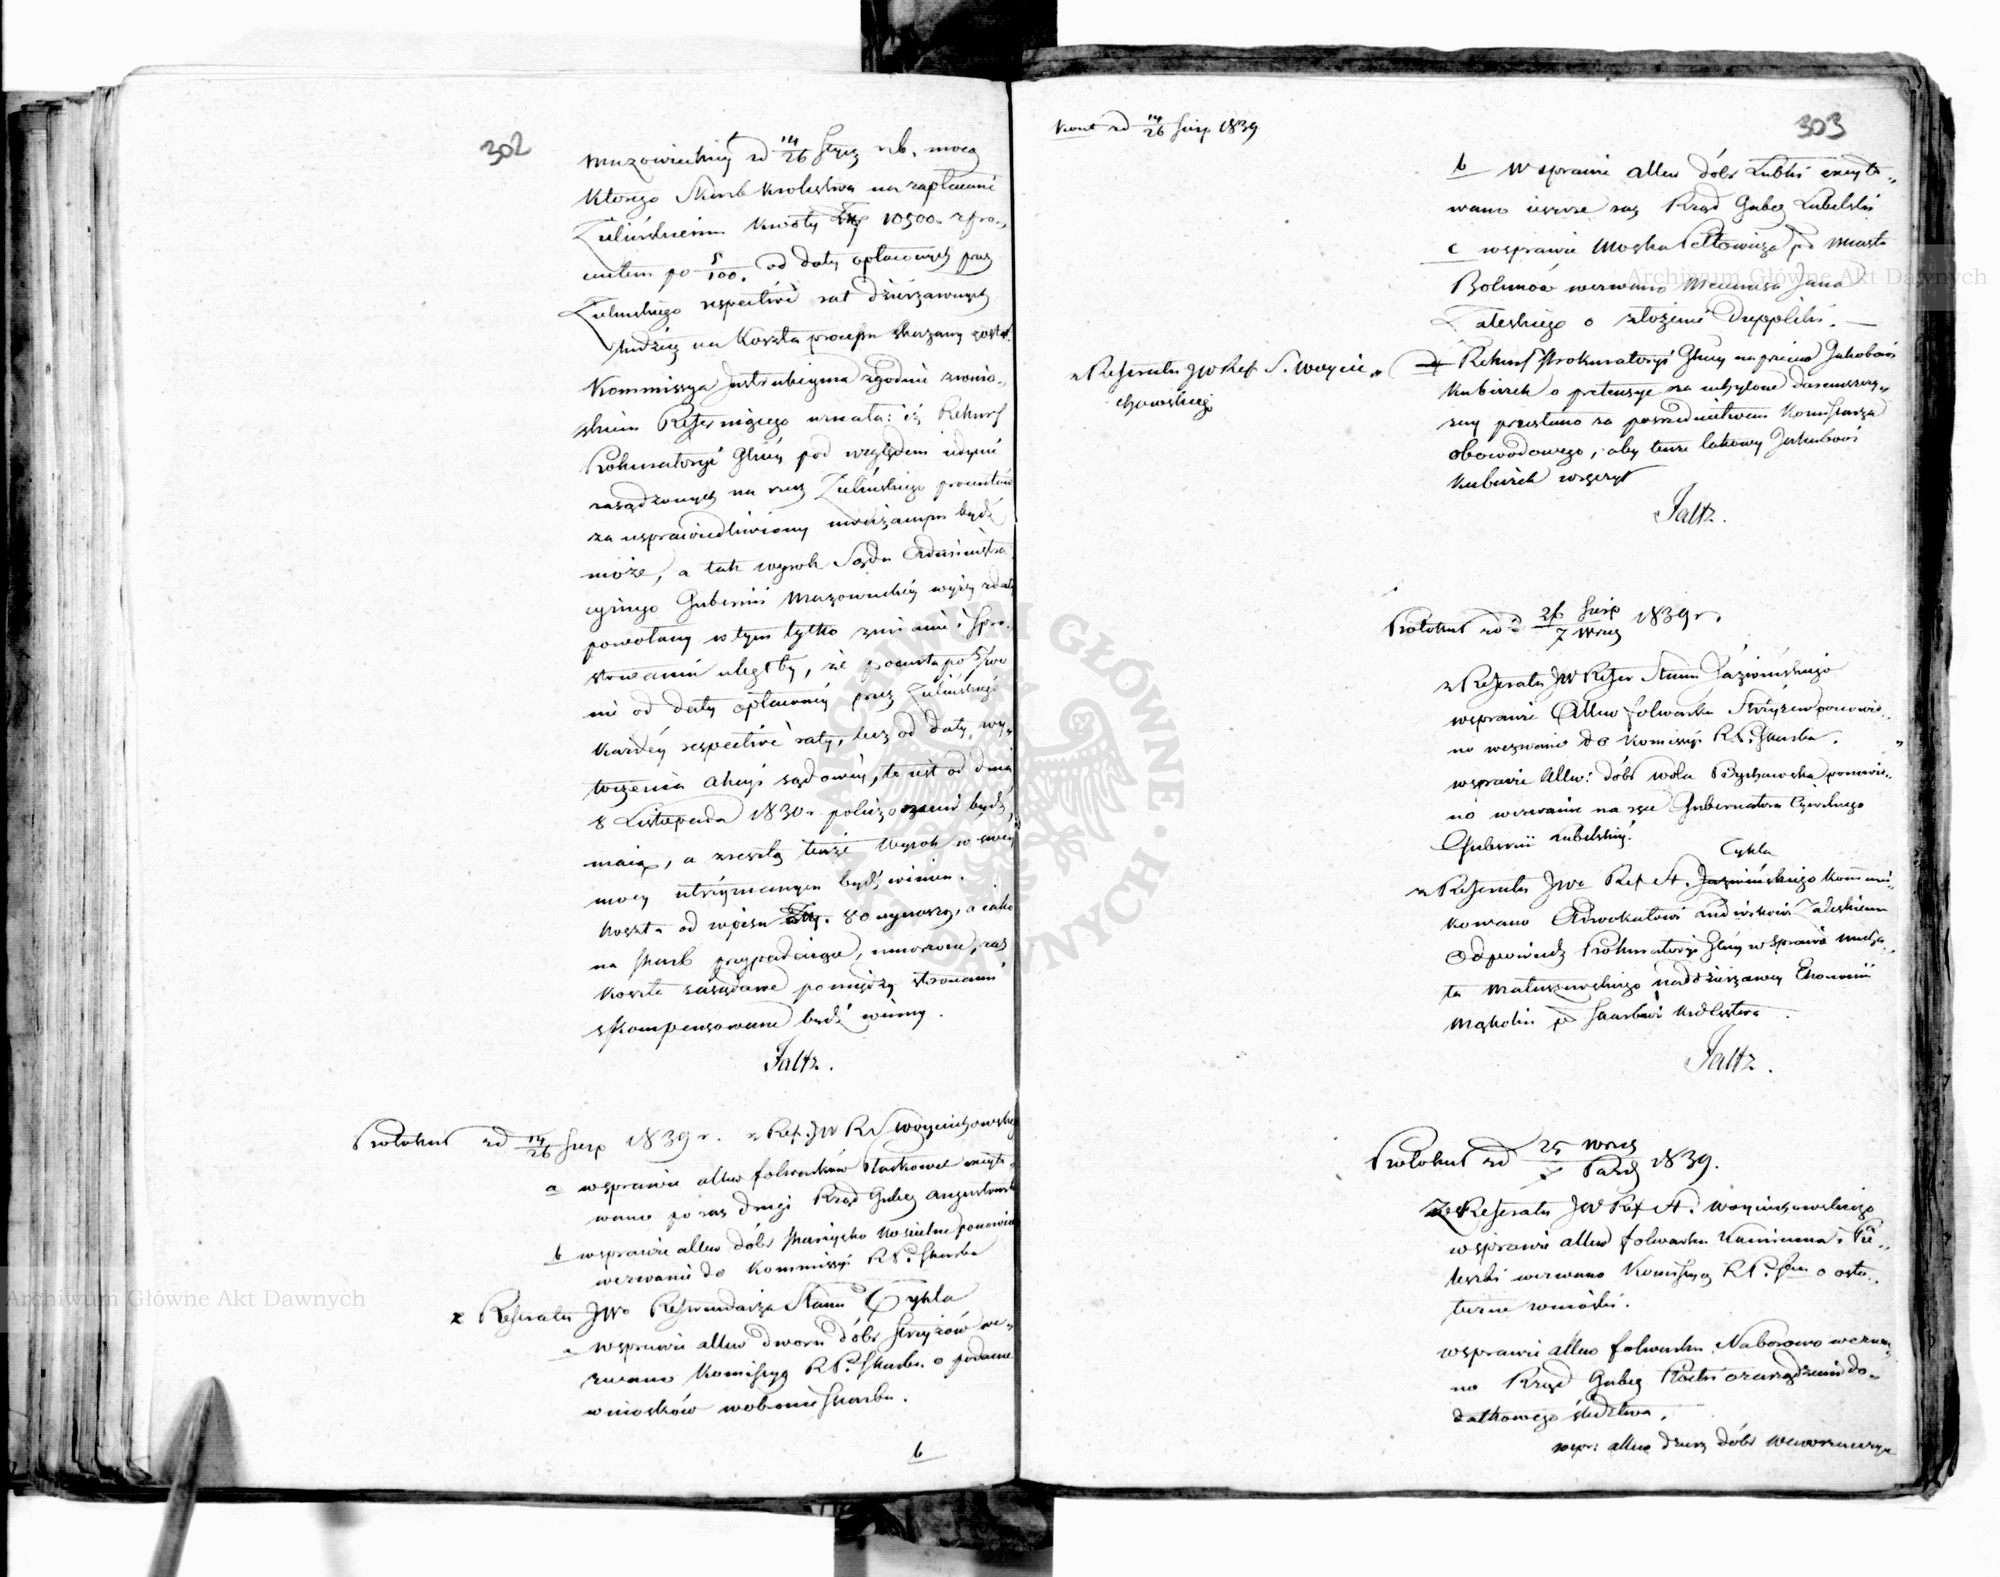 302
Mazowieckiey zd 14/26 Stycz r.b. mocą
którego Skarb Królestwa na zapłacenie
Zielińskiemu kwoty Złp 10500 z pro„
centem po 5/100 od daty opłaconych przez
Zielińskiego respective rat dzierżawnych
tudzież na koszta processu skazany został.
Kommissya Instrukcyina zgodnie z wnio„
skiem Referuiącego uznała: iż Rekurs
Prokuratoryi Glney pod względem iedynie
zasądzonych na rzecz Zielińskiego procentów
za usprawiedliwiony uważanym bydź
może, a tak wyrok Sądu Administra
cyinego Gubernii Mazowieckiey wyżey z daty
powołany w tym tylko zmianie i spro„
stowaniu uległby, że procenta po 5/100
nie od daty opłaconey przez Zielińskiego
każdéy respective raty, lecz od daty wy„
toczenia akcyi sądowey, to iest od dnia
8 Listopada 1830 r. policzone bydź
maią, a zresztą tenże Wyrok w swey
mocy utrzymanym bydź winien.
Koszta od wpisu Złp. 80 wynoszą, a iako
na Skarb przypadaiące, umorzone, zaś
koszta zasądzone pomiędzy stronami
skompensowane bydź winny.
Faltz.
Protokuł zd 14/26 Sierp 1839 r. z Ref. JW RS Woyciechowskiego
a w sprawie allew folwarków Staskowce excyto„
wano po raz drugi Rząd Guber Augustowski
b w sprawie allew dóbr Skarzysko Kościelne ponowiono
wezwanie do Kommissyi R.P. Skarbu
z Referatu JWo Referendarza Stanu Cykla
a w sprawie allew dworu dóbr Strzyżów we„
zwano Komissyą R.P. Skarbu o podanie
wniosków w obronie Skarbu.
b
Kont zd 14/26 Sierp 1839
303
b W sprawie allew dóbr Lubki excyto„
wano ieszcze raz Rząd Guber Lubelski
c w sprawie Moska Pełtowicza pd Miasto
Bolimów wezwano Mecenasa Jana
Zaleskiego o złożenie Duppliki. —
z Referatu JW Ref S. Woycie„
chowskiego
Rekurs Prokuratoryi Glney naprzeciw Jakobowi
Kubiczek o pretensye za uchylone daremszczy„
zny przesłano za pośrednictwem Komissarza
obwodowego, aby tenże takowy Jakubowi
Kubiczek wręczył
Faltz.
Protokuł zd 26 Sierp/7 Wrześ 1839 r.
z Referatu JW Refer Stanu Jaźwińskiego
w sprawie Allew folwarku Strzyżew ponowio„
no wezwanie do Komissyi R.P. Skarbu.
w sprawie Allew: dóbr Wola Bychawska ponowio„
no wezwanie na ręce Gubernatora Cywilnego
Gubernii Lubelskiey.
Cykla
z Referatu JWo Ref St. Jaźwińskiego kommuni„
kowano Adwokatowi Ludwikowi Zaleskiemu
Odpowiedź Prokuratoryi Glney w sprawie Mate„
ta Matuszewskiego naddzierżawcy Ekonomii
Mąkolin pd Skarbowi Królestwa.
Faltz.
Protokuł zd 25 Wrześ/7 Paźd 1839.
z Referatu JW Ref St. Woyciechowskiego
w sprawie allew folwarku Kamienna i Pie„
leszki wezwano Komissyą R.P. Skar o osta„
teczne wnioski.
w sprawie allew folwarku Naborowo wezwa„
no Rząd Guber Płocki o zarządzenie do„
datkowego śledztwa.
wspr: allew dzierż dóbr Wawrzenczyce
Archiwum Główne Akt Dawnych
Archiwum Główne Akt Dawnych
ARCHIWUM GŁÓWNE · AKT DAWNYCH ·